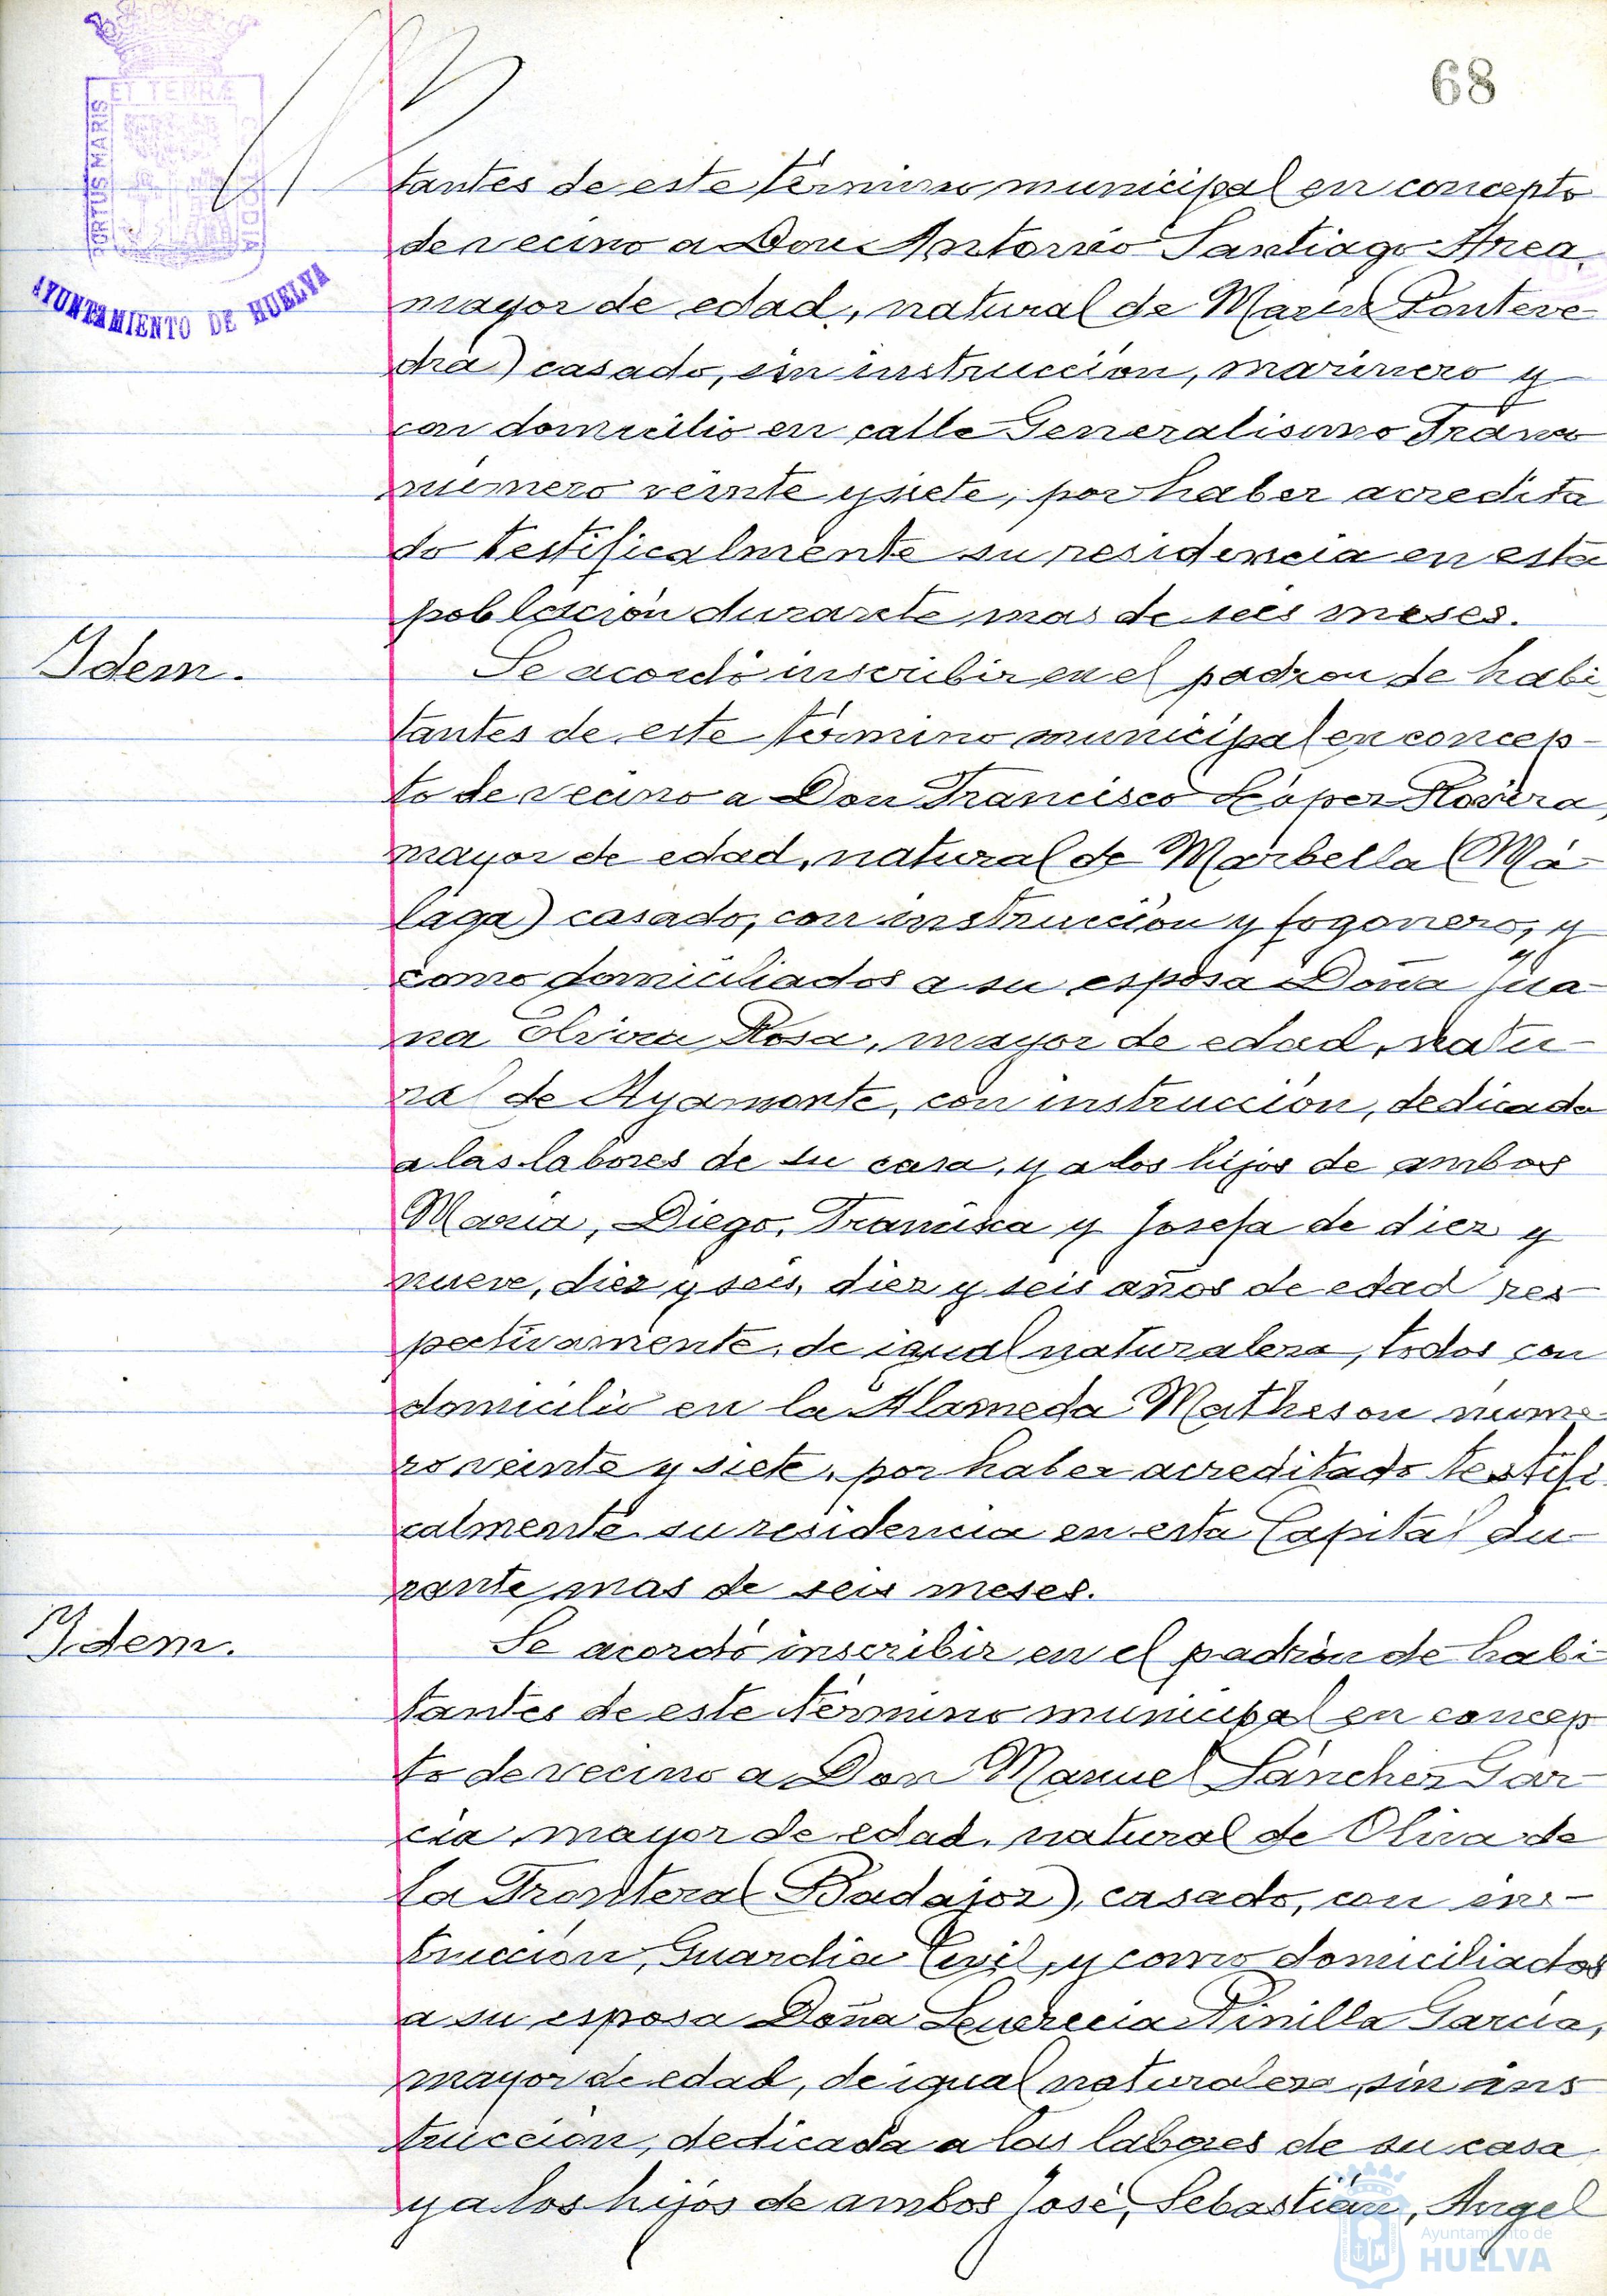 68
ET TERRÆ
PORTUS MARIS
CUSTODIA
AYUNTAMIENTO DE HUELVA
tantes de este término municipal en concepto
de vecino a Don Antonio Santiago
mayor de edad, natural de Marin (Ponteve-
dra) casado, sin instrucción, marinero y
con domicilio en calle Generalisimo Franco
número veinte y siete, por haber acredita
do testificalmente su residencia en esta
población durante mas de seis meses.
Idem.
Se acordó inscribir en el padron de habi-
tantes de este término municipal en concep-
to de vecino a Don Francisco López
mayor de edad, natural de Marbella (Má-
laga) casado, con instrucción y fogonero, y
como domiciliados a su esposa Doña Jua-
na Olivera Rosa, mayor de edad, natu-
ral de Ayamonte, con instrucción, dedicada
a las labores de su casa, y a los hijos de ambos
Maria, Diego, Francisca y Josefa de diez y
nueve, diez y seis, diez y seis años de edad res-
pectivamente, de igual naturaleza, todos con
domicilio en la Alameda Matheson núme-
ro veinte y siete, por haber acreditado testifi-
calmente su residencia en esta Capital du-
rante mas de seis meses.
Idem.
Se acordó inscribir en el padrón de habi-
tantes de este término municipal en concep
to de vecino a Don Manuel Sánchez Gar-
cia, mayor de edad, natural de Oliva de
la Frontera (Badajoz), casado, con ins-
trucción, Guardia Civil, y como domiciliados
a su esposa Doña Pinilla García,
mayor de edad, de igual naturaleza, sin ins
trucción, dedicada a las labores de su casa
y a los hijos de ambos José, Sebastián, Angel
Ayuntamiento de
HUELVA